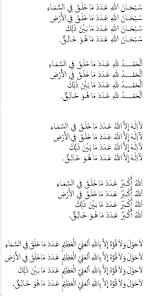 سُبْحَانَ اللّٰهِ عَدَدَ مَا خَلَقَ فِي السَّمَاءِ
سُبْحَانَ اللّٰهِ عَدَدَ مَا خَلَقَ فِي الْأَرْضِ
سُبْحَانَ اللّٰهِ عَدَدَ مَا بَيْنَ ذٰلِكَ
سُبْحَانَ اللّٰهِ عَدَدَ مَا هُوَ خَالِقٌ.
الْحَمْدُ لِلّٰهِ عَدَدَ مَا خَلَقَ فِي السَّمَاءِ
الْحَمْدُ لِلّٰهِ عَدَدَ مَا خَلَقَ فِي الْأَرْضِ
الْحَمْدُ لِلّٰهِ عَدَدَ مَا بَيْنَ ذٰلِكَ
الْحَمْدُ لِلّٰهِ عَدَدَ مَا هُوَ خَالِقٌ.
لَآ اِلٰهَ اِلاَّ اللّٰهُ عَدَدَ مَا خَلَقَ فِي السَّمَاءِ
لَآ اِلٰهَ اِلاَّ اللّٰهُ عَدَدَ مَا خَلَقَ فِي الْأَرْضِ
لَآ اِلٰهَ اِلاَّ اللّٰهُ عَدَدَ مَا بَيْنَ ذٰلِكَ
لَآ اِلٰهَ اِلاَّ اللّٰهُ عَدَدَ مَا هُوَ خَالِقٌ.
اَللّٰهُ أَكْبَرُ عَدَدَ مَا خَلَقَ فِي السَّمَاءِ
اَللّٰهُ أَكْبَرُ عَدَدَ مَا خَلَقَ فِي الْأَرْضِ
اَللّٰهُ أَكْبَرُ عَدَدَ مَا بَيْنَ ذٰلِكَ
اَللّٰهُ أَكْبَرُ عَدَدَ مَا هُوَ خَالِقٌ.
لاَحَوْلَ وَلاَ قُوَّةَ اِلاَّ بِاللّٰهِ الْعَلِيِّ الْعَظِيْمِ عَدَدَ مَا خَلَقَ فِي السَّمَاءِ
لاَحَوْلَ وَلاَ قُوَّةَ اِلاَّ بِاللّٰهِ الْعَلِيِّ الْعَظِيْمِ عَدَدَ مَا خَلَقَ فِي الْأَرْضِ
لاَحَوْلَ وَلاَ قُوَّةَ اِلاَّ بِاللّٰهِ الْعَلِيِّ الْعَظِيْمِ عَدَدَ مَا بَيْنَ ذٰلِكَ
لاَحَوْلَ وَلاَ قُوَّةَ اِلاَّ بِاللّٰهِ الْعَلِيِّ الْعَظِيْمِ عَدَدَ مَا هُوَ خَالِقٌ.